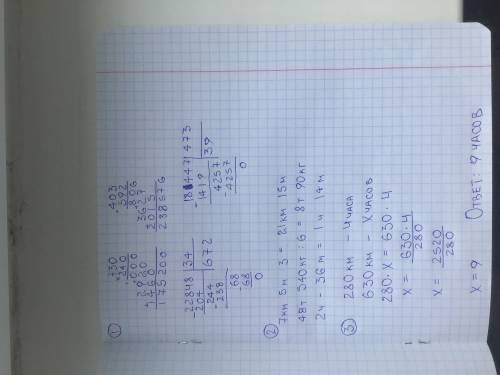 ①
×730
240
+000
2920
1460
175200
×403
592
806
3627
2015
238576
-22848 | 34
204 | 672
-244
238
-68
68
0
-18447 | 473
1419 | 39
-4257
4257
0
②
7км 5м · 3 = 21км 15м
48т 540кг : 6 = 8т 90кг
2ч - 36м = 1ч 14м
③
280км - 4часа
630км - xчасов
280·x = 630·4
x = 630·4/280
x = 2520/280
x = 9 Ответ: 9 часов